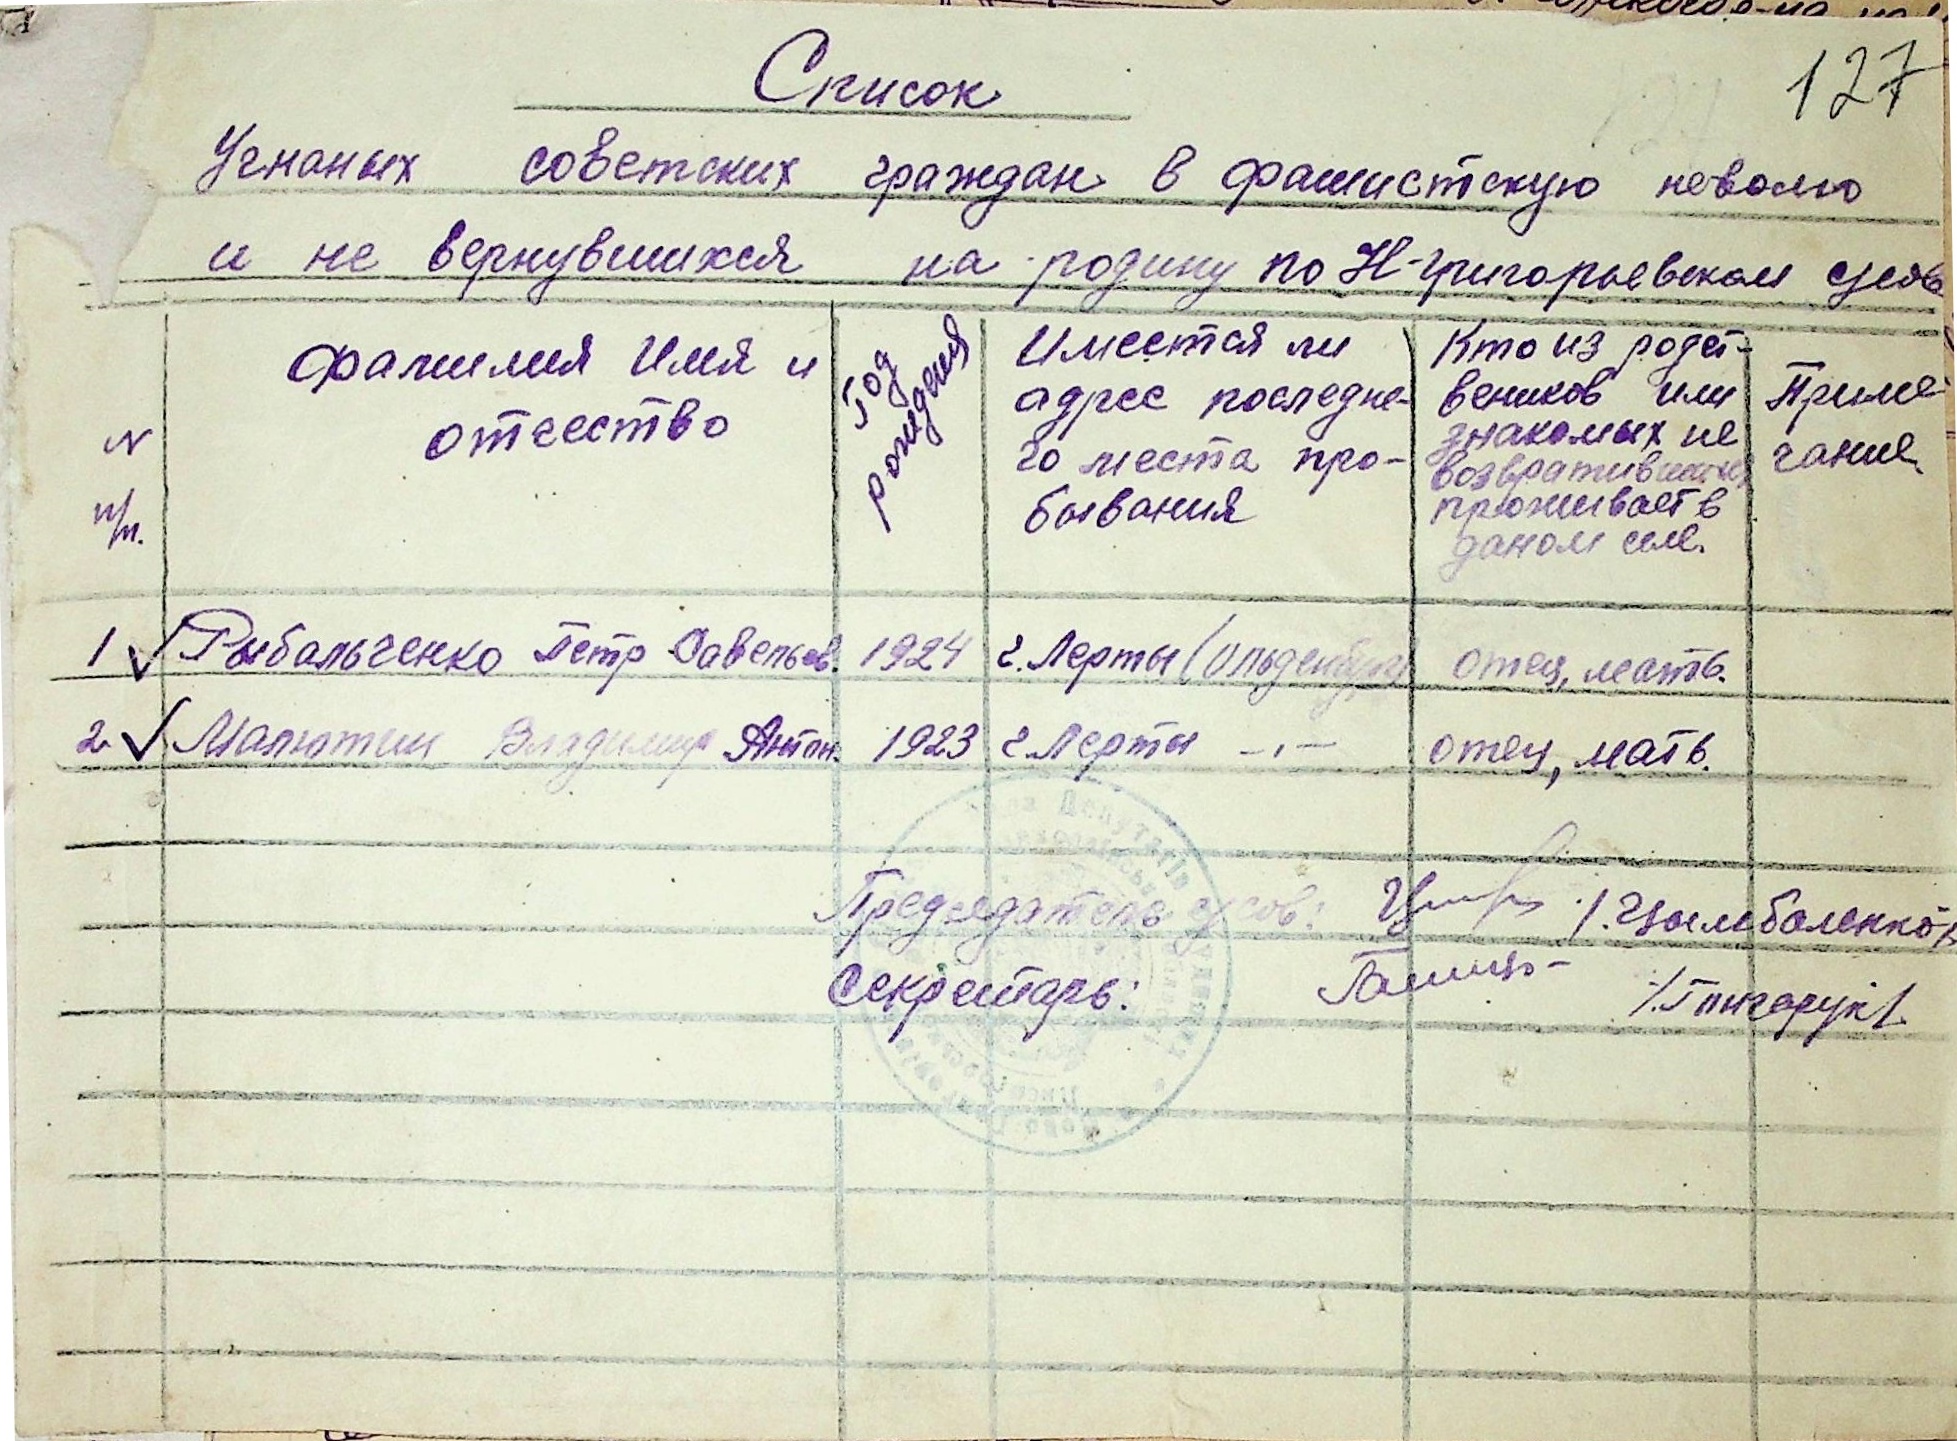 127
Список
Угнаных советских граждан в фашистскую неволю
и не вернувшихся на родину по Н-Григорьевском с/сов
N п/п.
Фамилия Имя и
отчество
Год рождения
Имеется ли
адрес последне-
го места про-
бывания
Кто из родст-
веников или
знакомых не
возвратившихся
проживает в
даном селе.
Приме-
чание
1 Рыбальченко Петр Савельев. 1924 г. Лерты (Ольденбург отец, мать.
2 Малютин Владимир Антон. 1923 г Лерты -„- отец, мать.
Председатель с/сов: /.Цымбаленко/
Секретарь: